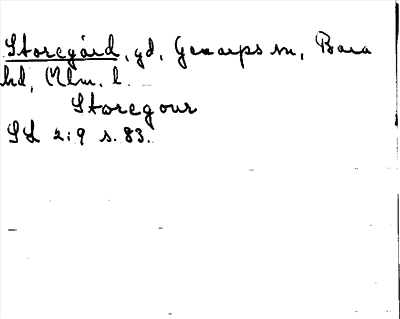 Storegård, gd, Genarps sn, Bara
hd, Mlm. l.
Storegour
SL 2:9 s. 83.